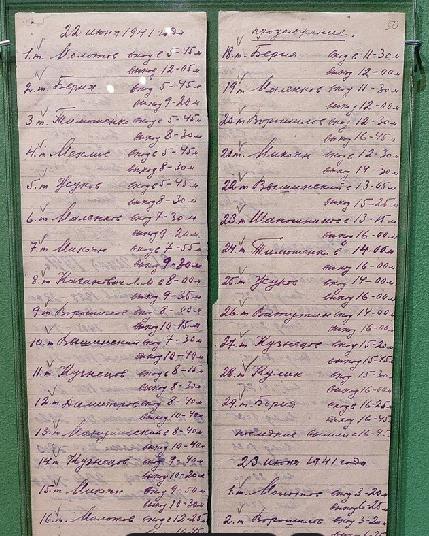 22 июня 1941 года
1. т. Молотов вход 5-45 м
выход 12-05 м
2. т. Берия вход 5-45 м
выход 9-20 м
3. т. Тимошенко вход 5-45 м
выход 8-30 м
4. т. Мехлис вход 5-45 м
выход 8-30 м
5. т. Жуков вход 5-45 м
выход 8-30 м
6. т. Маленков вход 7-30 м
выход 9-20 м
7. т. Микоян вход 7-55 м
выход 9-30 м
8. т. Каганович Л.М. в 8-00 м
выход 9-35 м
9. т. Ворошилов вход 8-00 м
выход 10-15 м
10. т. Вышинский вход 7-30 м
выход 10-40 м
11. т. Кузнецов вход 8-15 м
выход 8-30 м
12. т. Димитров вход 8-40 м
выход 10-40 м
13. т. Мануильский в 8-40 м
выход 10-40 м
14. т. Кузнецов вход 9-40 м
выход 10-20 м
15. т. Микоян вход 9-50 м
выход 10-30 м
16. т. Молотов вход 12-25 м
продолжение.
18. т. Берия вход в 11-30 м
выход 12-00 м
19. т. Маленков вход 11-30 м
выход 12-00 м
20. т. Ворошилов вход 12-30 м
выход 16-45 м
21. т. Микоян вход в 12-30 м
выход 14-30 м
22. т. Вышинский в 13-05 м
выход 15-25 м
23. т. Шапошников в 13-15 м
выход 16-00 м
24. т. Тимошенко в 14-00 м
выход 16-00 м
25. т. Жуков вход 14-00 м
выход 16-00 м
26. т. Ватутин вход 14-00 м
выход 16-00 м
27. т. Кузнецов вход 15-20 м
выход 15-45 м
28. т. Кулик вход 15-30 м
выход 16-00 м
29. т. Берия вход в 16-25 м
выход 16-45 м
последние вышли в 16-45
23 июня 1941 года
1. т. Молотов вход 3-20 м
выход 6-25 м
2. т. Ворошилов вход 3-20 м